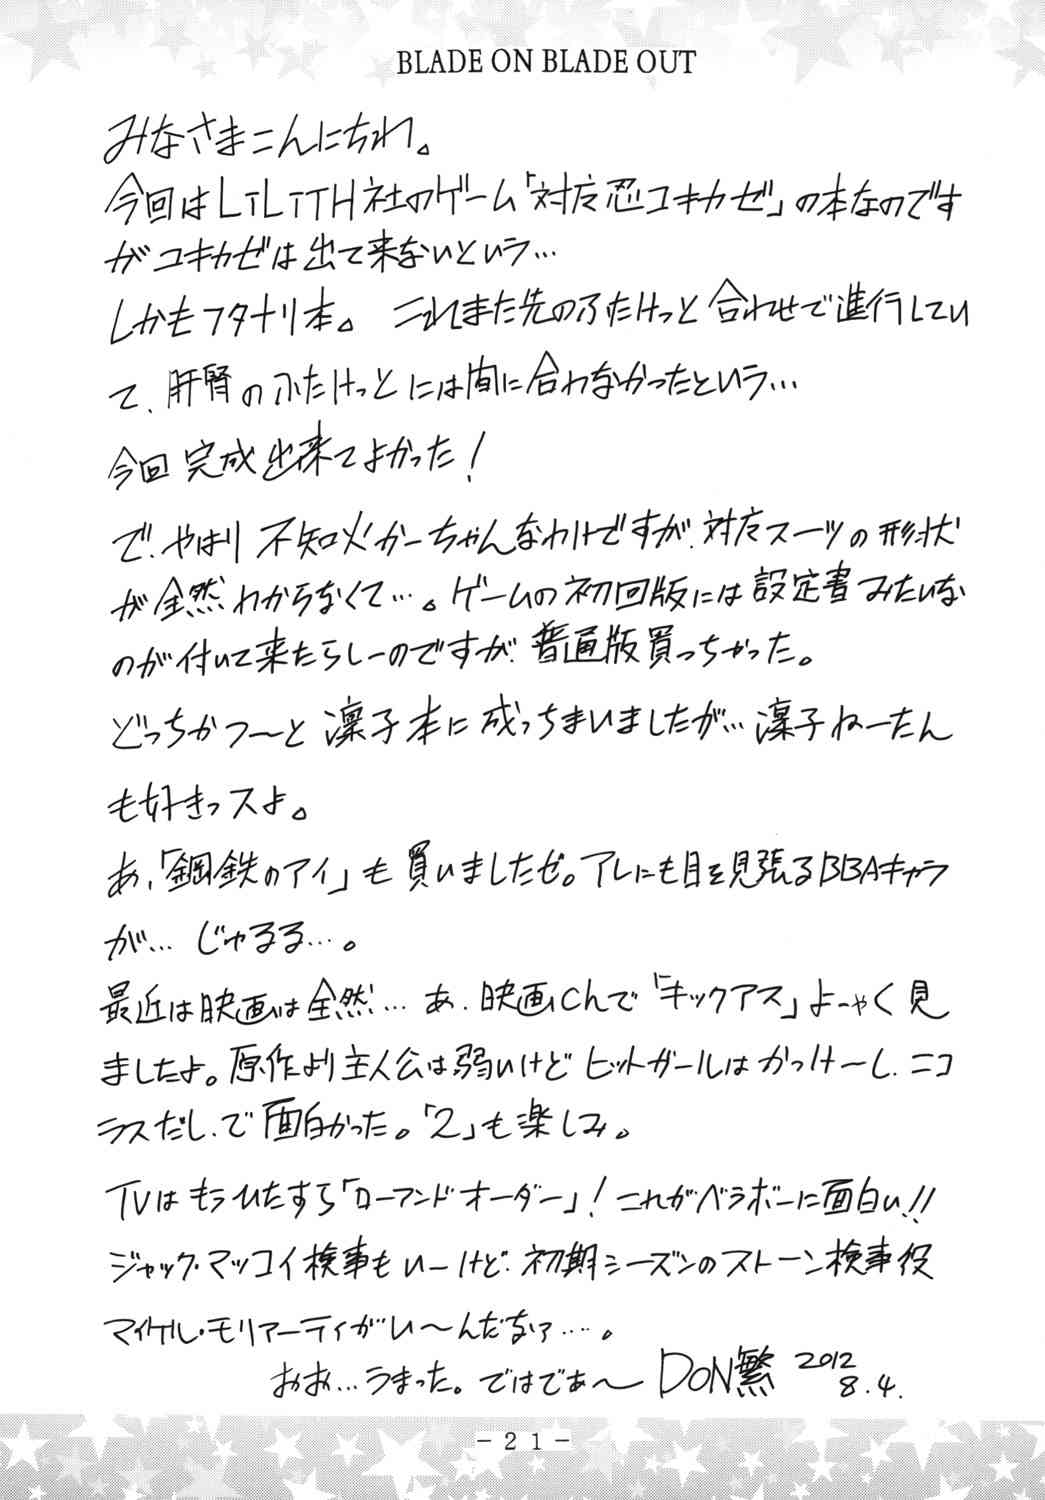 BLADE ON BLADE OUT
みなさまこんにちわ。
今回はLiLiTH社のゲーム「対魔忍ユキカゼ」の本なのです
がユキカゼは出て来ないという…
しかもフタナリ本。 これまた先のふたけっと合わせで進行してい
て、肝腎のふたけっとには間に合わなかったという…
今回完成出来てよかった!
で、やはり不知火かーちゃんなわけですが、対魔スーツの形状
が全然わからなくて…。ゲームの初回版には設定書みたいな
のが付いて来たらしーのですが、普通版買っちゃった。
どっちかつ〜と凛子本に成っちまいましたが…凛子ねーたん
も好きっスよ。
あ、「鋼鉄のアイ」も買いましたぜ。アレにも目を見張るBBAキャラ
が… じゅるる…。
最近は映画は全然… あ、映画ch.で「キックアス」よーやく見
ましたよ。原作より主人公は弱いけどヒットガールはかっけーし、ニコ
ラスだし、で面白かった。「2」も楽しみ。
TVはもうひたすら「ローアンドオーダー」! これがベラボーに面白い!!
ジャック・マッコイ検事もいーけど、初期シーズンのストーン検事役
マイケル・モリアーティがい〜んだなァ…。
おお…うまった。ではであ〜 DON繁 2012
8.4.
-21-